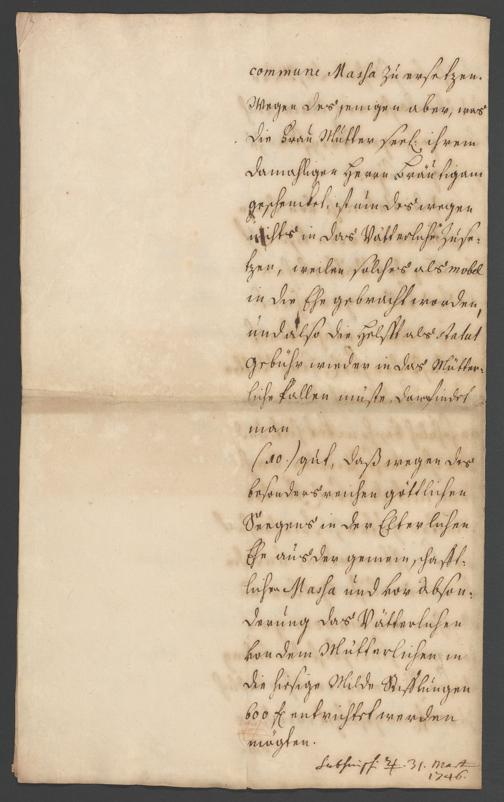 commune Massa zu ersetzen.
Wegen desjenigen aber, was
die Frau Mutter seel: ihrem
damahligen Herrn Bräutigam
geschencket, ist um deswegen
nichts in das Vätterliche zuse-
tzen, weilen solches als mobel
in die Ehe gebracht worden,
und also die Helfft als statut
Gebühr wieder in das Mütter-
liche fallen müste. dann findet
man
(10.) gut, daß wegen des
besonders reichen göttlichen
Seegens in der Elterlichen
Ehe aus der gemeinschafft-
lichen Massa und vor abson-
derung des Vätterlichen
von dem Mütterlichen in
die hiesige Milde Stifftungen
600 f entrichtet werden
mögten.
31. Mart.
1746.